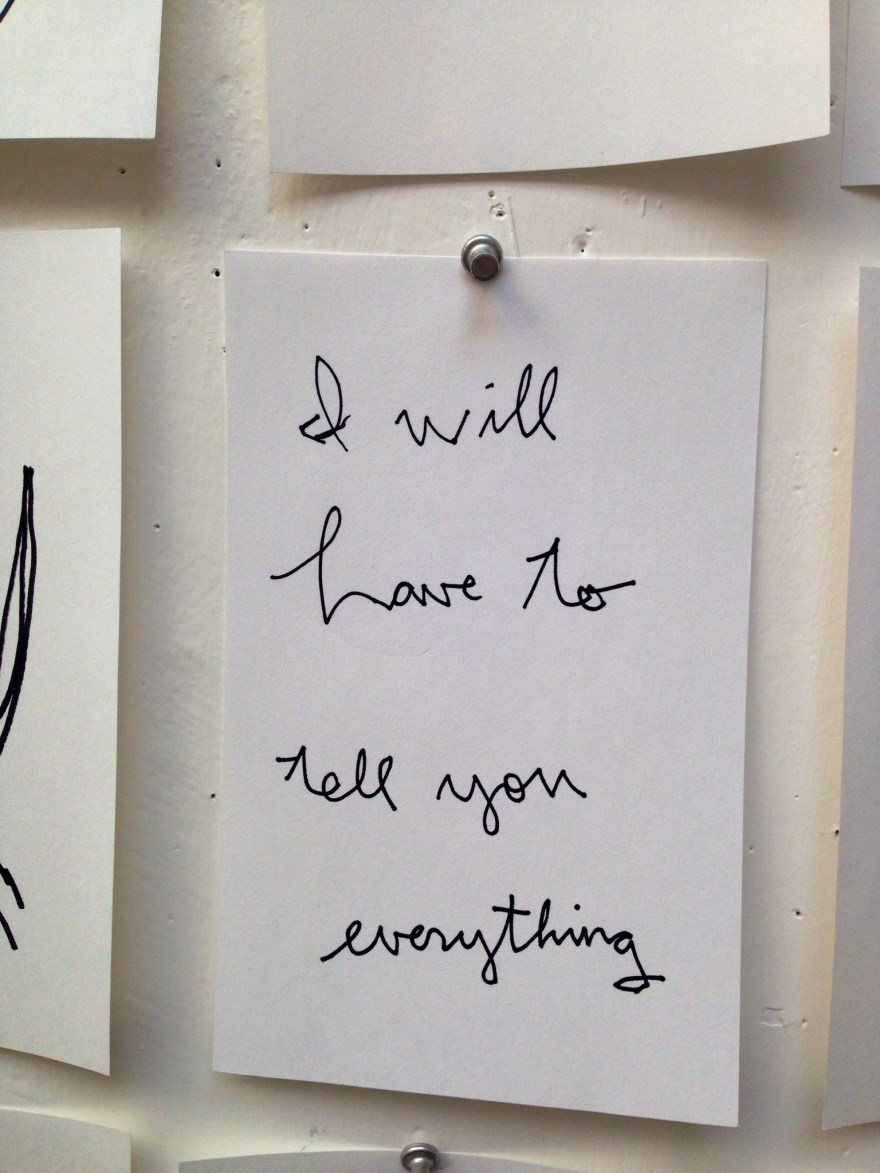 I will
have to
tell you
everything